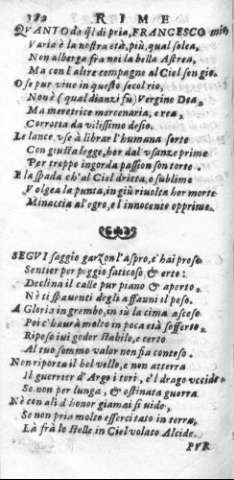 382 RIME
QVANTO da ql di pria, FRANCESCO mio,
Varia è la nostra età, più, qual solea,
Non alberga fra noi la bella Astrea,
Ma con l'altre compagne al Ciel sen gìo.
O se pur vive in questo secol rio,
Non è (qual dianzi fu) Vergine Dea,
Ma meretrice mercenaria, e rea,
Corrotta da vilissimo desio.
Le lance, vse à librar l'humana sorte
Con giusta legge, hor dal vsanze prime
Per troppo ingorda passion son torte.
E la spada ch'al Ciel dritta, e sublime
Volgea la punta, in giù riuolta hor morte
Minaccia al egro, e l'innocente opprime.
SEGVI saggio garzon l'aspro, c'hai preso
Sentier per poggio faticoso, & erto:
Declina il calle pur piano & aperto.
Nè ti spauenti degli affanni il peso.
A Gloria in grembo, in sù la cima asceso
Poi c'haurà molto in poca età sofferto,
Riposo iui goder stabile, e certo
Al tuo sommo valor non fia conteso.
Non riporta il bel vello, e non atterra
Il guerrier d'Argo i tori, è'l drago vccide
Se non per lunga, & ostinata guerra
Nè con ali d'honor giamai si vide,
Se non pria molto essercitato in terra,
Là frà le stelle in Ciel volato Alcide.
PVR